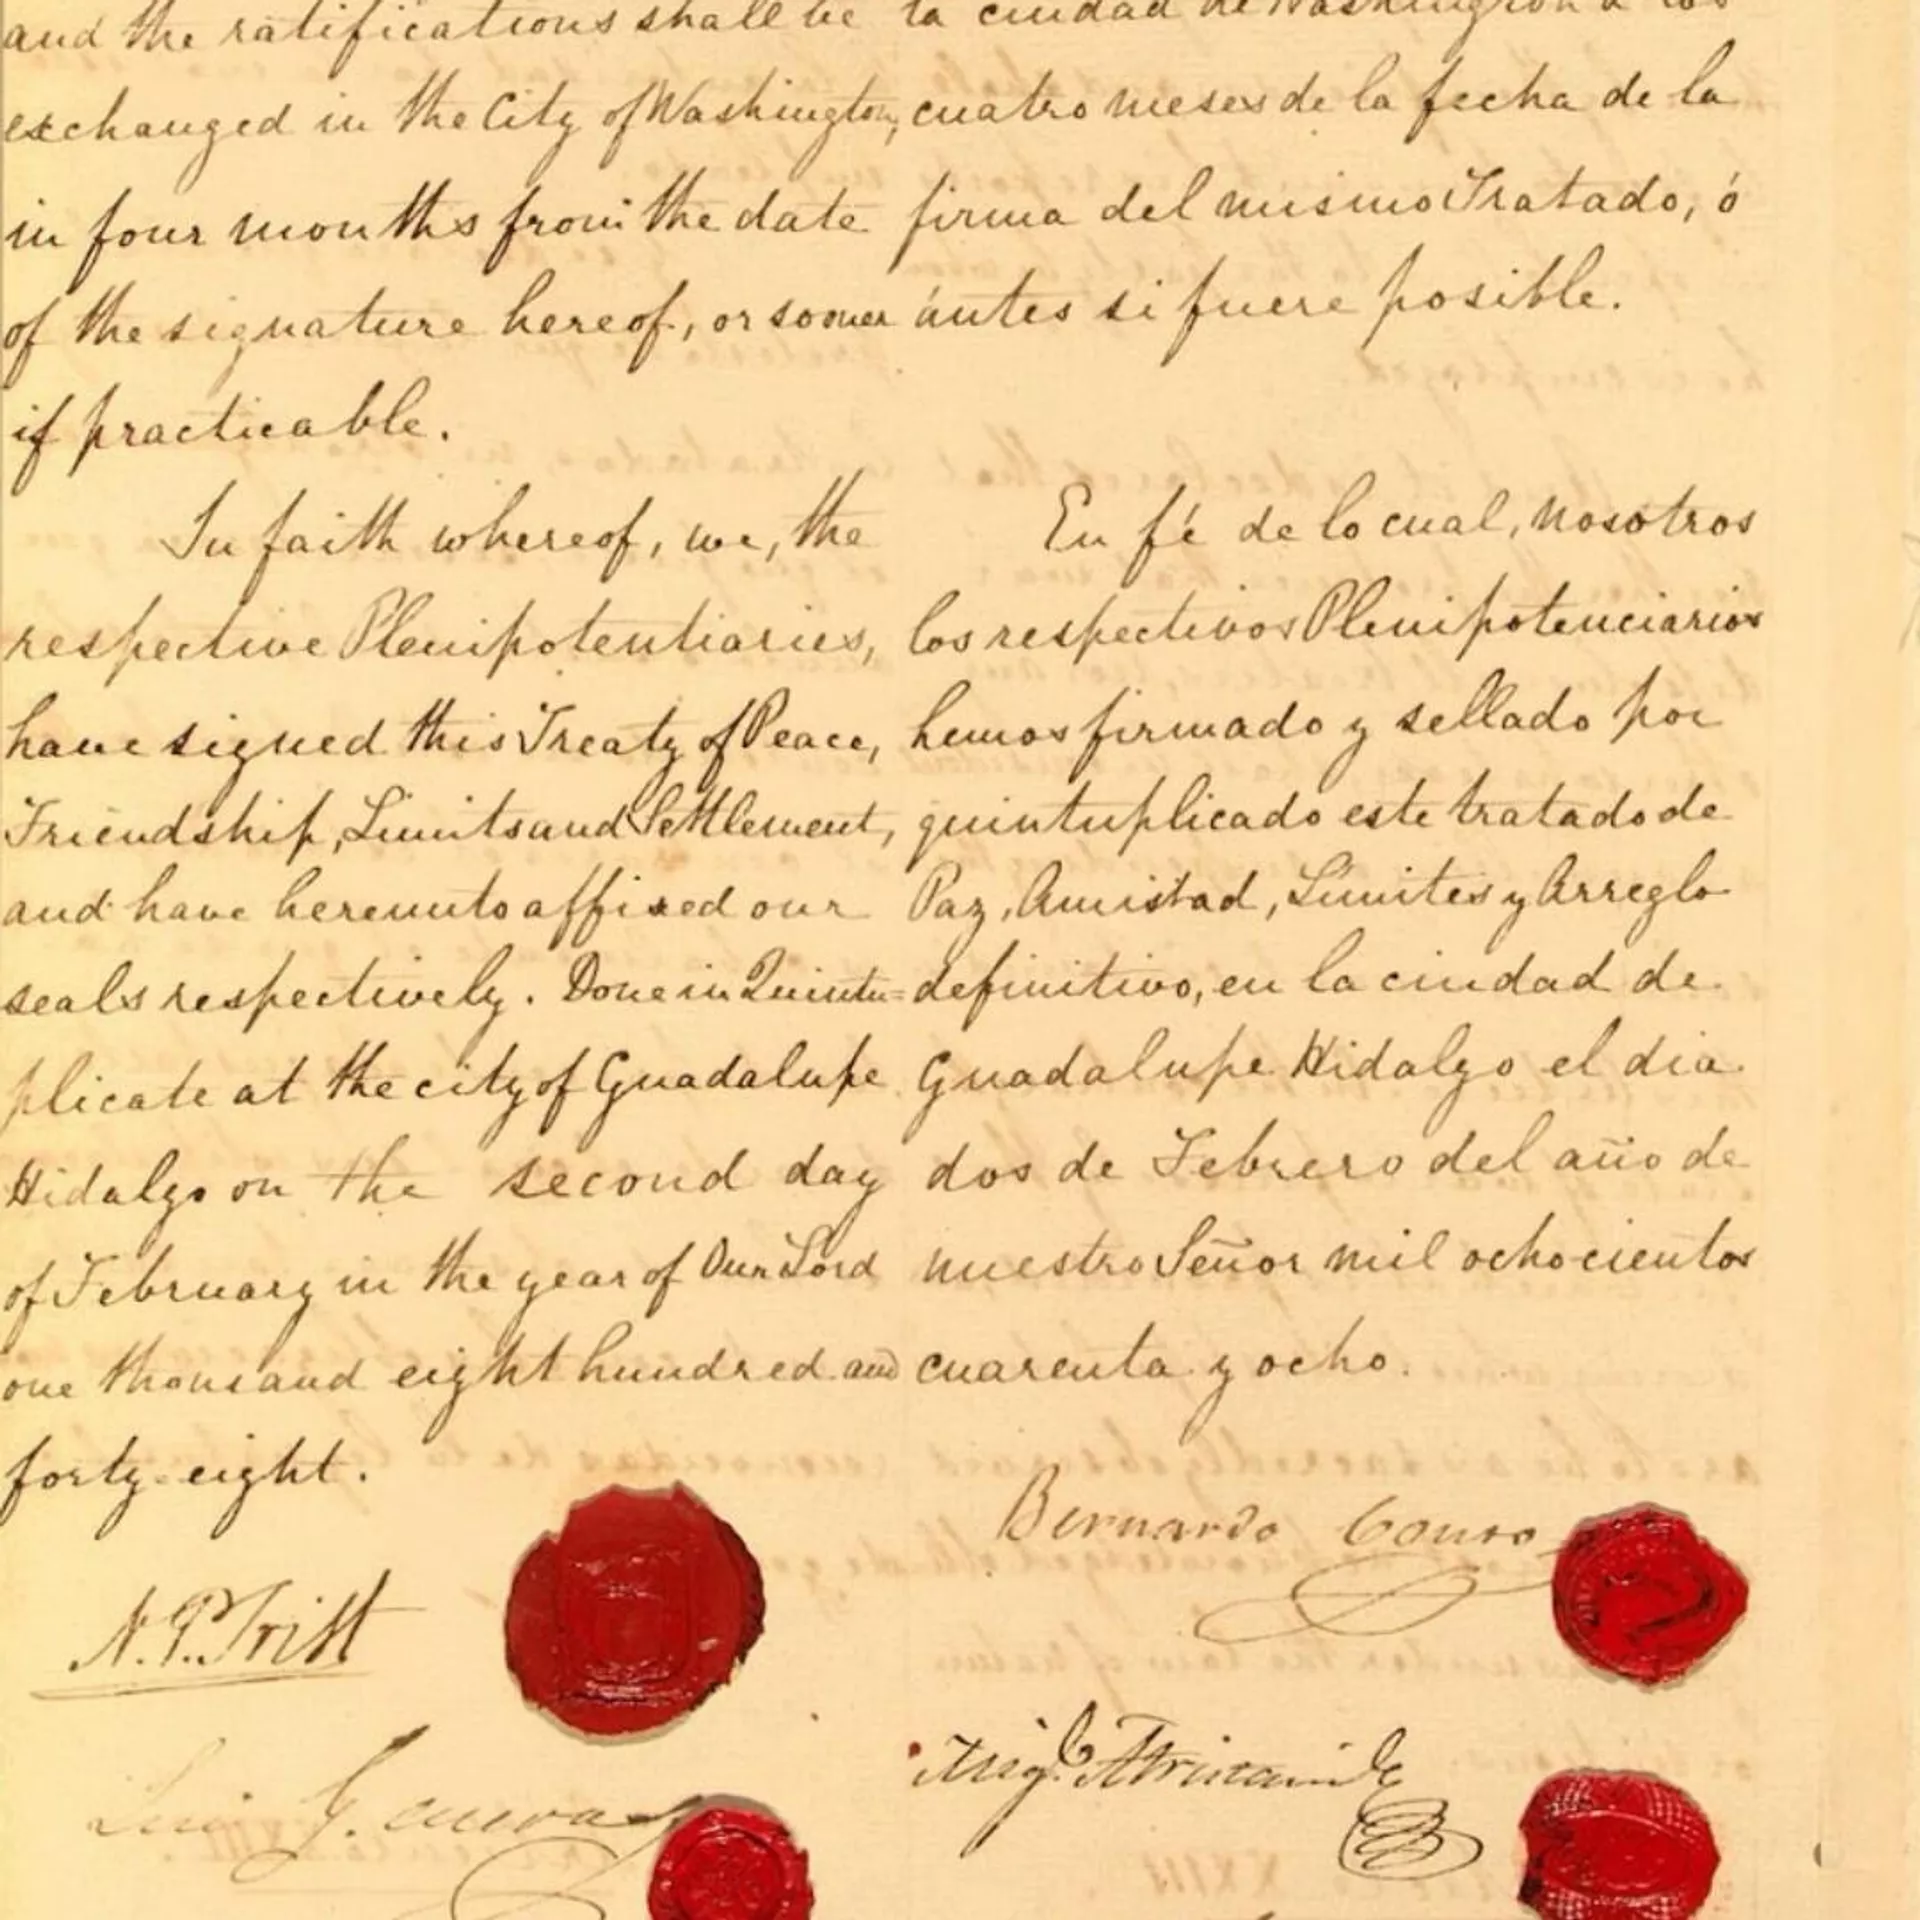 and the ratifications shall be
exchanged in the City of Washington,
in four months from the date
of the signature hereof, or sooner
if practicable.
In faith whereof, we, the
respective Plenipotentiaries,
have signed this Treaty of Peace,
Friendship, Limits and Settlement,
and have hereunto affixed our
seals respectively. Done in Quintu=
plicate at the city of Guadalupe
Hidalgo on the second day
of February in the year of Our Lord
one thousand eight hundred and
forty-eight.
N. P. Trist
Luis G. Cuevas
la ciudad de Washington a los
cuatro meses de la fecha de la
firma del mismo Tratado, ó
ántes si fuere posible.
En fé de lo cual, nosotros
los respectivos Plenipotenciarios
hemos firmado y sellado por
quintuplicado este tratado de
Paz, Amistad, Límites y Arreglo
definitivo, en la ciudad de
Guadalupe Hidalgo el dia
dos de Febrero del año de
nuestro Señor mil ochocientos
cuarenta y ocho.
Bernardo Couto
Migl. Atristain